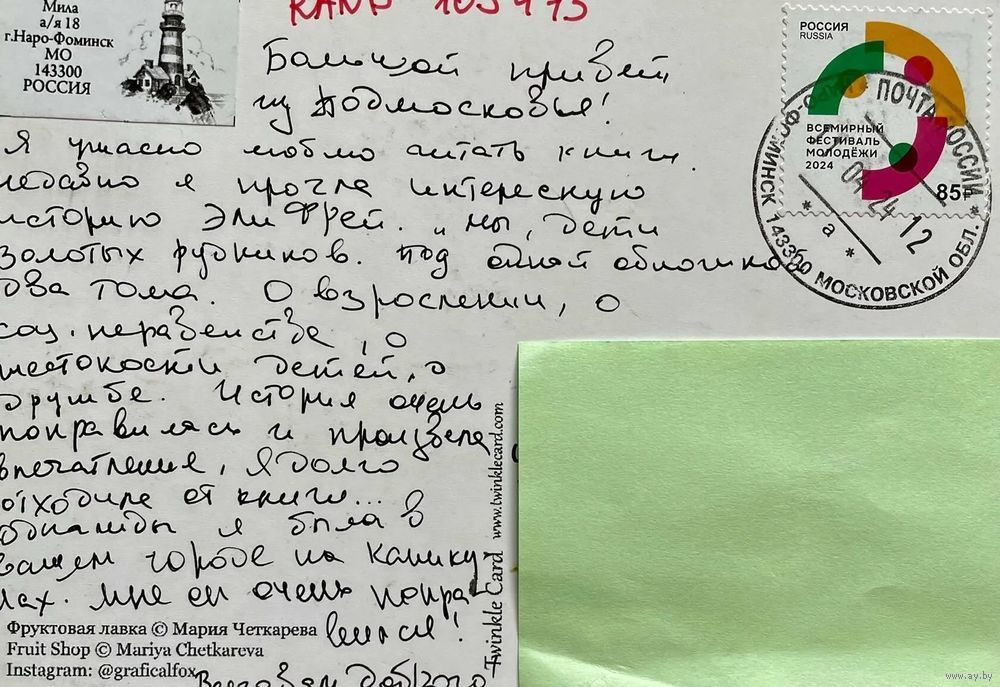 RAND 105473
Мила
а/я 18
г.Наро-Фоминск
МО
143300
РОССИЯ
Большой привет
из Подмосковья!
Я ужасно люблю читать книги
недавно я прочла интересную
историю Эли Фрей. „Мы, дети
золотых рудников. Под одной обложкой
два тома. О взрослении, о
соц. неравенстве, о
жестокости детей, о
дружбе. История очень
понравилась и произвела
впечатление, я долго
отходила от книги...
однажды я была в
вашем городе на канику
лах. Мне он очень понра-
вился!
Всего Вам доброго
РОССИЯ
RUSSIA
ВСЕМИРНЫЙ
ФЕСТИВАЛЬ
МОЛОДЁЖИ
2024
85₽
ПОЧТА РОССИИ
143300 МОСКОВСКОЙ ОБЛ.
04 24 12
* а *
Twinkle Card www.twinklecard.com
Фруктовая лавка © Мария Четкарева
Fruit Shop © Mariya Chetkareva
Instagram: @graficalfox
www.ay.by